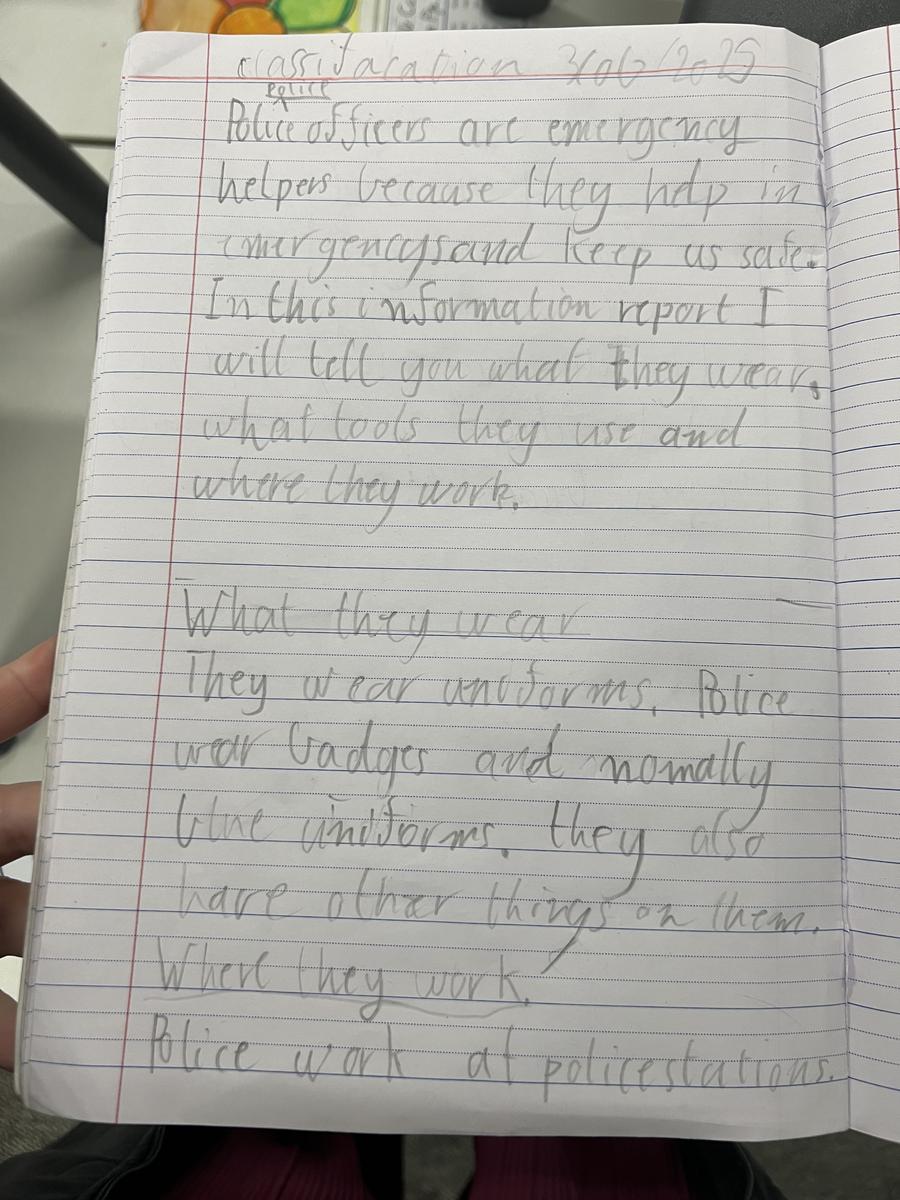 classifacation 3/06/2025
Police
Police officers are emergency
helpers because they help in
emergencys and keep us safe.
In this information report I
will tell you what they wear,
what tools they use and
where they work.
What they wear
They wear uniforms. Police
wear badges and nomally
blue uniforms. they also
have other things on them.
Where they work.
Police work at policestations.